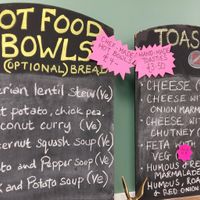 OT FOOD
BOWLS
(OPTIONAL) BREAD
erian lentil Stew (Ve)
t potato, chick pea,
conut curry (Ve)
ernut squash soup (Ve)
to and Pepper soup (Ve)
and Potato soup (Ve)
CHEF-MADE
HOT
HAND MADE
TOASTIES
£3.50
TOAS
- CHEESE
- CHEESE WI
ONION MARM
- CHEESE WIT
CHUTNEY
- FETA
VEG
- HUMOUS, GREE
MARMALADE
- HUMOUS, ROA
& RED ONION